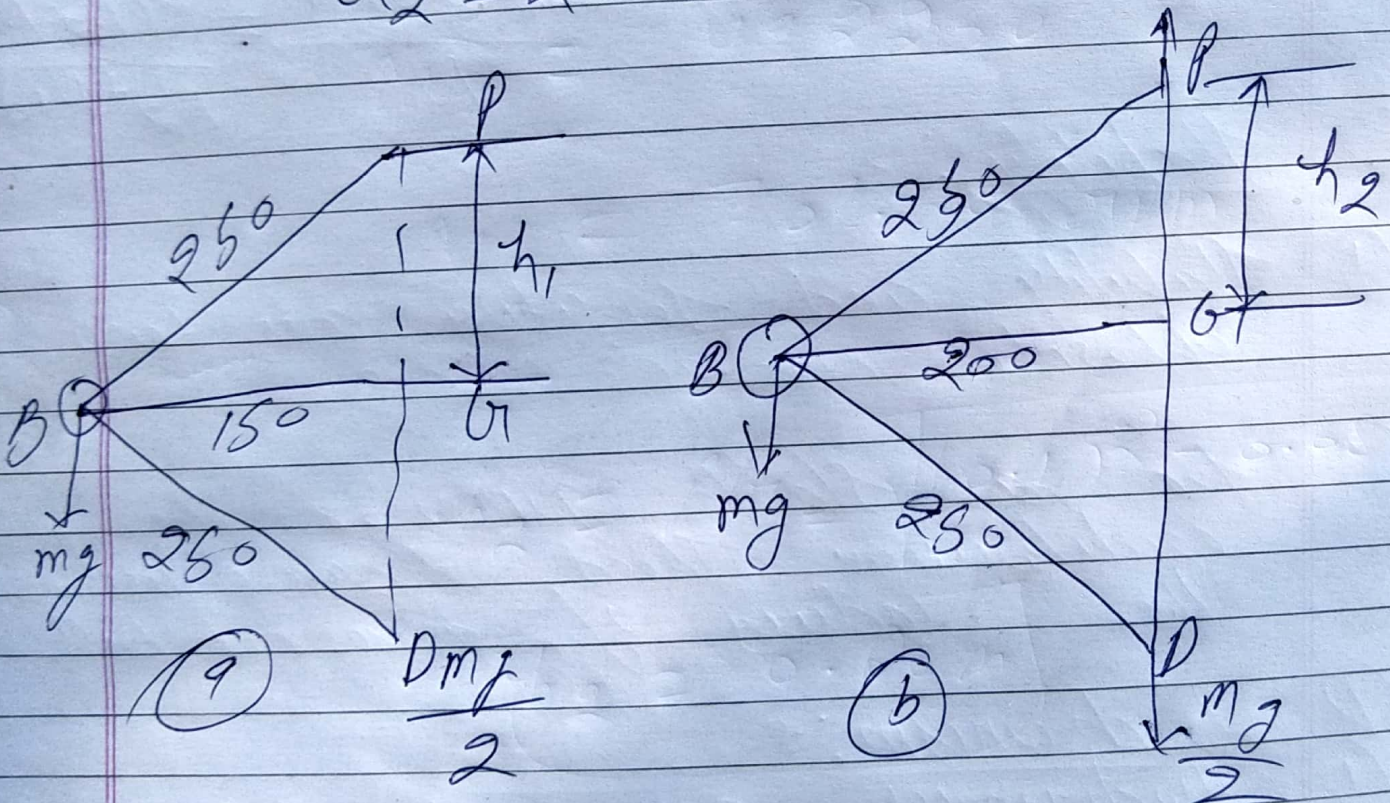 P
250
h₁
B
150
G
mg
250
D mg
2
a
P
250
h₂
B
200
G
mg
250
D
mg
2
b